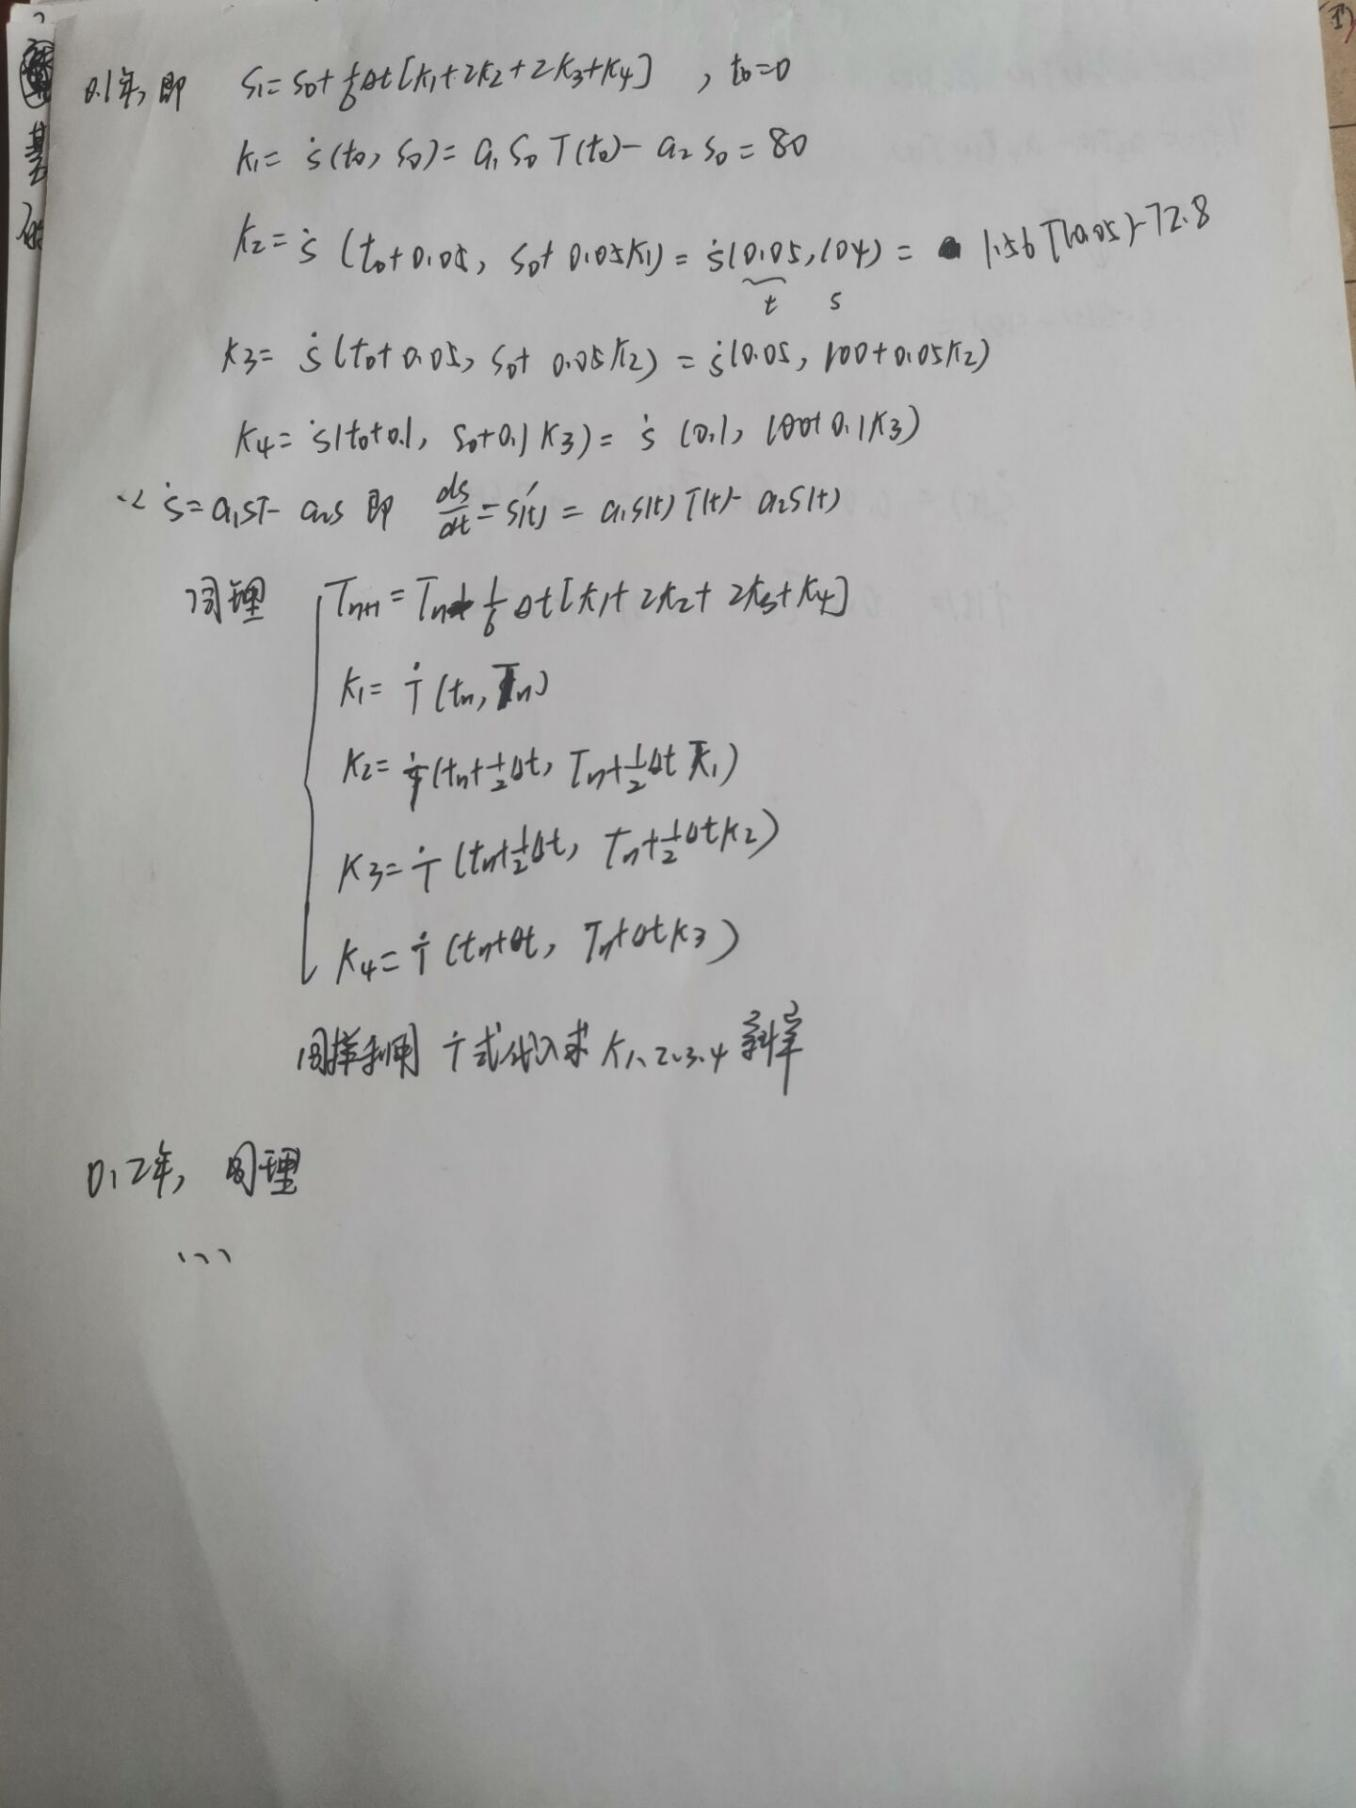 0.1年,即 S₁=S₀+1/6 Δt[K₁+2K₂+2K₃+K₄] , t₀=0
K₁= ṡ(t₀, S₀)= a₁S₀T(t₀)- a₂S₀=80
K₂= ṡ (t₀+0.05, S₀+0.05K₁)= ṡ(0.05,104)= 1.56T(0.05)-72.8
t s
K₃= ṡ(t₀+0.05, S₀+0.05K₂)= ṡ(0.05, 100+0.05K₂)
K₄= ṡ(t₀+0.1, S₀+0.1K₃)= ṡ (0.1, 100+0.1K₃)
∵ ṡ=a₁ST- a₂S 即 ds/dt=S'(t)= a₁S(t)T(t)- a₂S(t)
同理 Tn+1=Tn+1/6 Δt[K₁+2K₂+2K₃+K₄]
K₁= Ṫ(tn, Tn)
K₂= Ṫ(tn+1/2Δt, Tn+1/2Δt K₁)
K₃= Ṫ(tn+1/2Δt, Tn+1/2ΔtK₂)
K₄= Ṫ(tn+Δt, Tn+ΔtK₃)
同样利用 Ṫ式代入求 K₁、2、3、4 斜率
0.2年, 同理
...